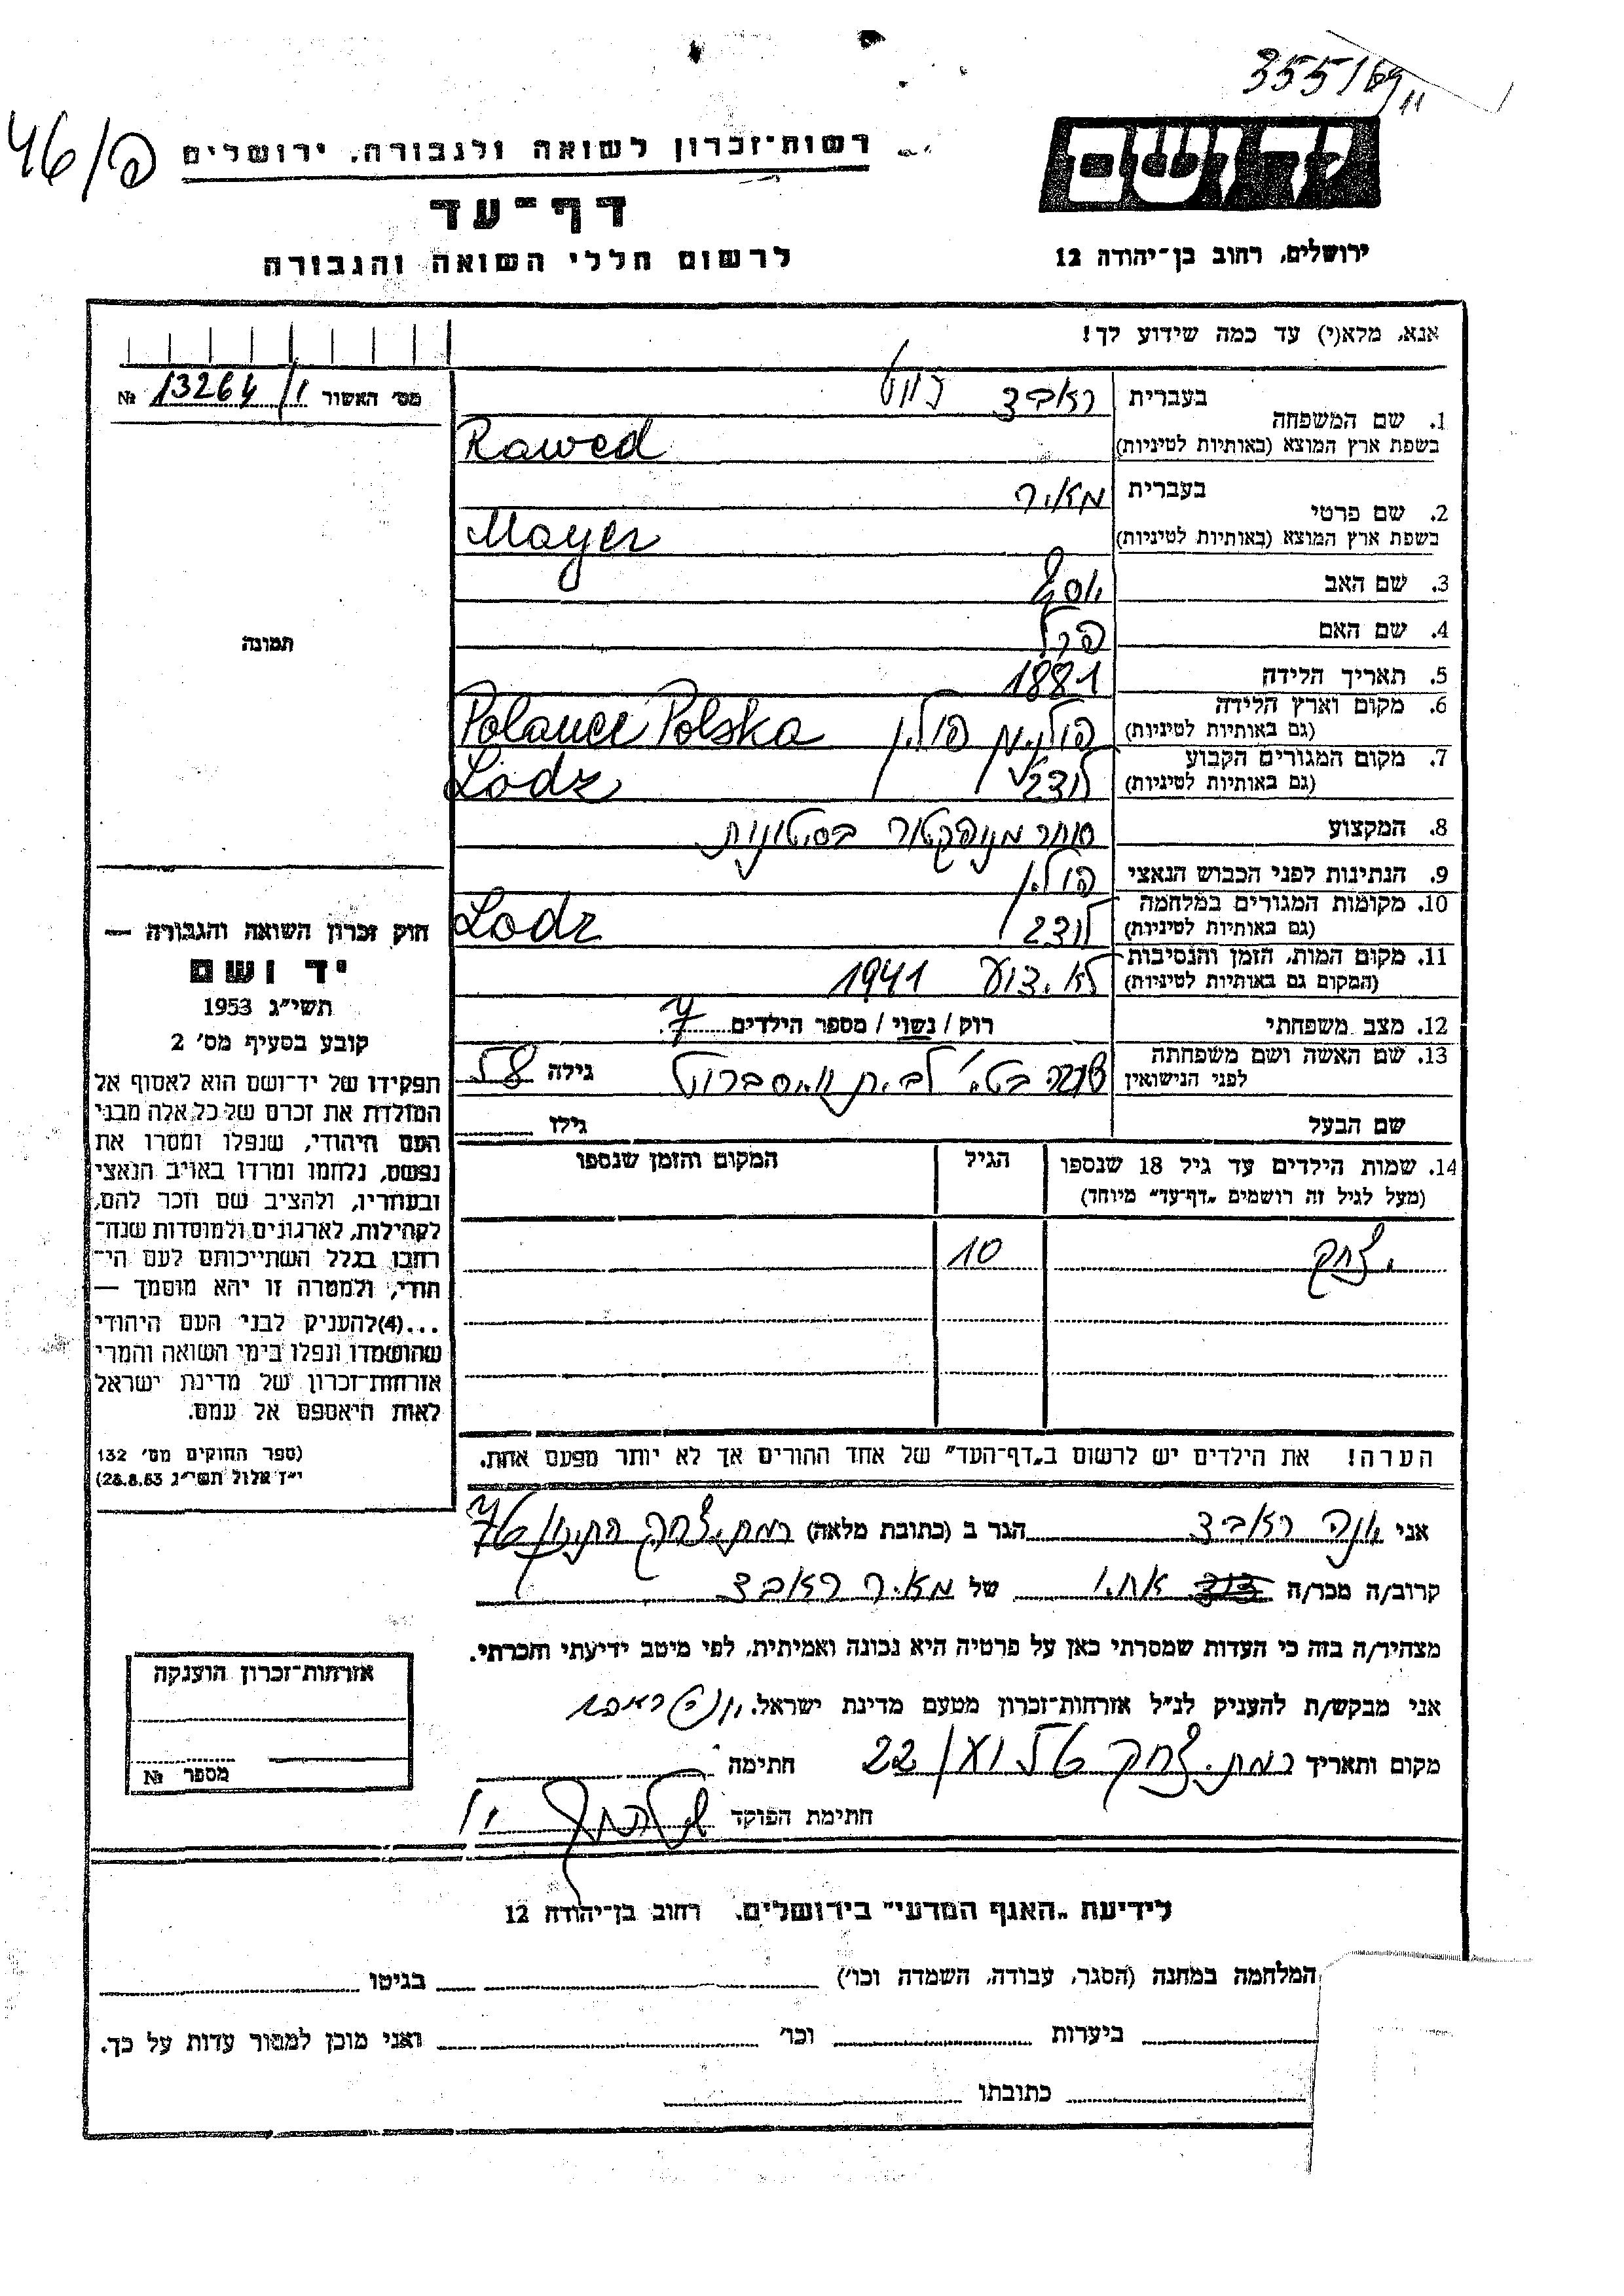 355/69
46/פ
יד ושם
רשות־זכרון לשואה ולגבורה, ירושלים
דף־עד
ירושלים, רחוב בן־יהודה 12
לרשום חללי השואה והגבורה
אנא, מלא(י) עד כמה שידוע לך!
מס׳ האשור 13264 №
1. שם המשפחה בעברית ראבד
בשפת ארץ המוצא (באותיות לטיניות) Rawed
2. שם פרטי בעברית מאיר
בשפת ארץ המוצא (באותיות לטיניות) Mayer
3. שם האב יוסף
4. שם האם פרל
5. תאריך הלידה 1881
6. מקום וארץ הלידה
(גם באותיות לטיניות) פולין Polanee Polska
7. מקום המגורים הקבוע
(גם באותיות לטיניות) לודז׳ Lodz
8. המקצוע סוחר מנופקטור בסיטונות
9. הנתינות לפני הכבוש הנאצי פולין
10. מקומות המגורים במלחמה
(גם באותיות לטיניות) לודז Lodz
11. מקום המות, הזמן והנסיבות
(המקום גם באותיות לטיניות) לא ידוע 1941
12. מצב משפחתי רוק / נשוי / מספר הילדים 7
13. שם האשה ושם משפחתה
לפני הנישואין לבית גילה 58
שם הבעל גילו
14. שמות הילדים עד גיל 18 שנספו
(מעל לגיל זה רושמים „דף־עד״ מיוחד)
הגיל
המקום והזמן שנספו
יצחק 10
הערה! את הילדים יש לרשום ב„דף־העד״ של אחד ההורים אך לא יותר מפעם אחת.
אני יונה ראבד הגר ב (כתובת מלאה) רמת יצחק
קרוב/ה מכר/ה אחיו של מאיר ראבד
מצהיר/ה בזה כי העדות שמסרתי כאן על פרטיה היא נכונה ואמיתית, לפי מיטב ידיעתי והכרתי.
אני מבקש/ת להעניק לנ״ל אזרחות־זכרון מטעם מדינת ישראל.
מקום ותאריך רמת יצחק 22 חתימה
חתימת הפוקד
תמונה
חוק זכרון השואה והגבורה —
יד ושם
תשי״ג 1953
קובע בסעיף מס׳ 2
תפקידו של יד־ושם הוא לאסוף אל
המולדת את זכרם של כל אלה מבני
העם היהודי, שנפלו ומסרו את
נפשם, נלחמו ומרדו באויב הנאצי
ובעוזריו, ולהציב שם וזכר להם,
לקהילות, לארגונים ולמוסדות שנח־
רחבו בגלל השתייכותם לעם הי־
הודי, ולמטרה זו יהא מוסמך —
...(4)להעניק לבני העם היהודי
שהושמדו ונפלו בימי השואה והמרי
אזרחות־זכרון של מדינת ישראל
לאות היאספם אל עמם.
(ספר החוקים מס׳ 132
י״ז אלול תשי״ג 28.8.53)
אזרחות־זכרון הוענקה
מספר №
לידיעת „האגף המדעי״ בירושלים, רחוב בן־יהודה 12
המלחמה במחנה (הסגר, עבודה, השמדה וכו׳) בגיטו
ביערות וכו׳ ואני מוכן למסור עדות על כך.
כתובתו